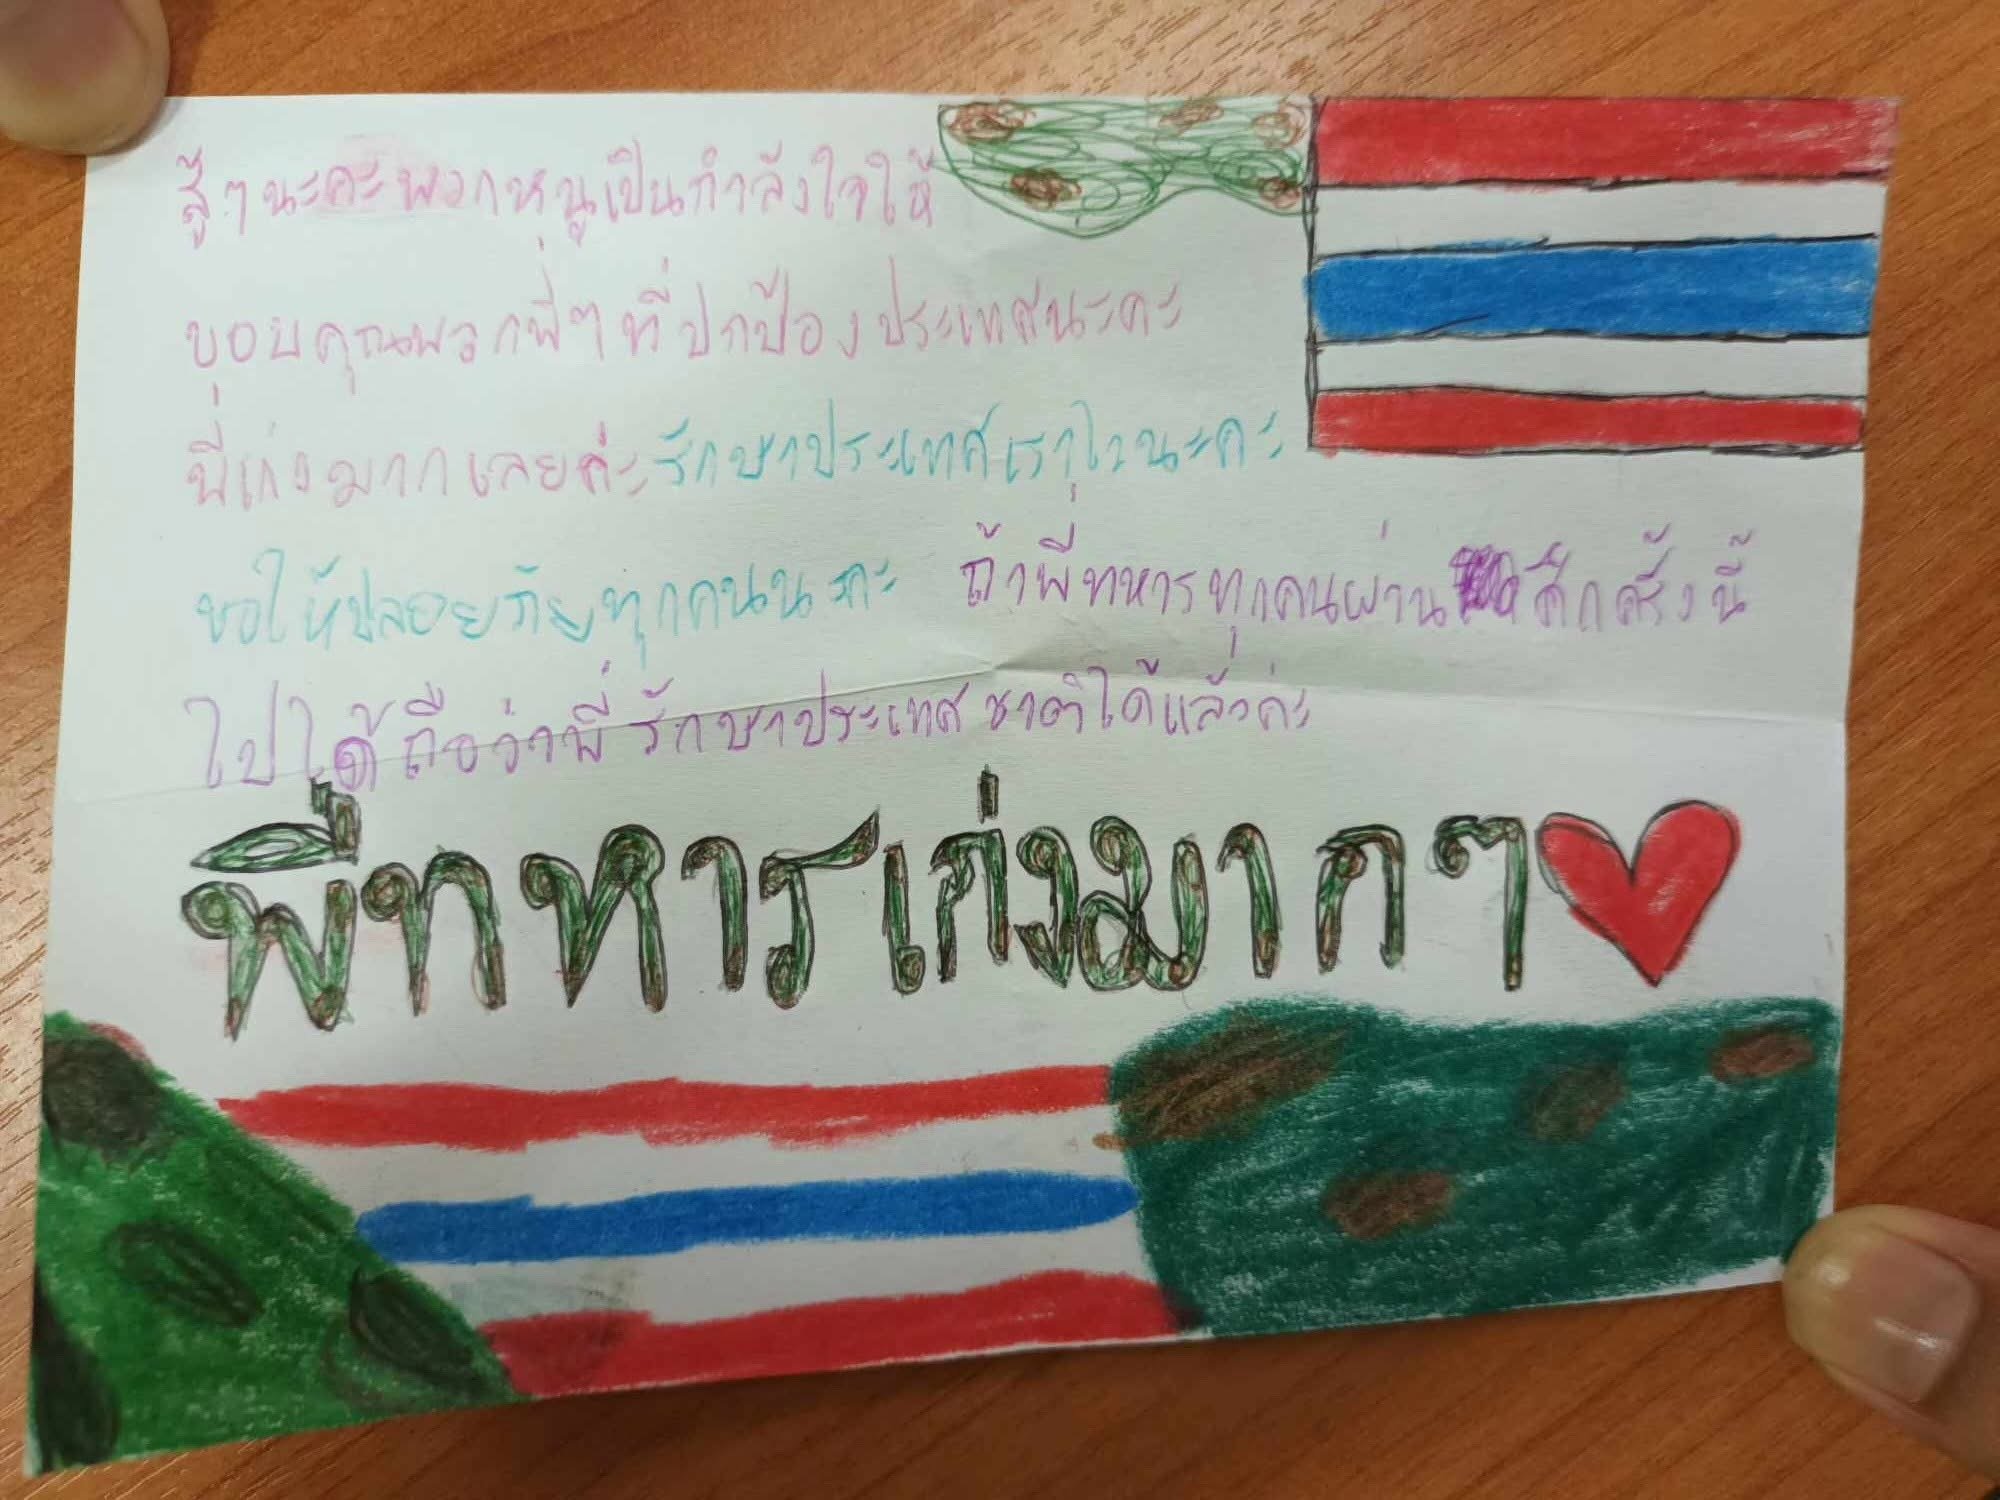 สู้ๆนะคะพวกหนูเป็นกำลังใจให้
ขอบคุณพวกพี่ๆที่ปกป้องประเทศนะคะ
พี่เก่งมากเลยค่ะรักษาประเทศเราไว้นะคะ
ขอให้ปลอดภัยทุกคนนะคะ ถ้าพี่ทหารทุกคนผ่านศึกครั้งนี้
ไปได้ถือว่าพี่รักษาประเทศชาติได้แล้วค่ะ
พี่ทหารเก่งมากๆ